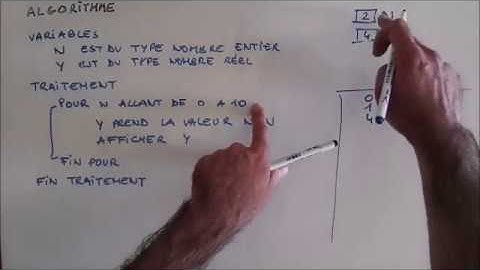 ALGORITHME
VARIABLES
N EST DU TYPE NOMBRE ENTIER
Y EST DU TYPE NOMBRE RÉEL
TRAITEMENT
POUR N ALLANT DE 0 A 10
Y PREND LA VALEUR N N
AFFICHER Y
FIN POUR
FIN TRAITEMENT
2 N
4
0
1
4